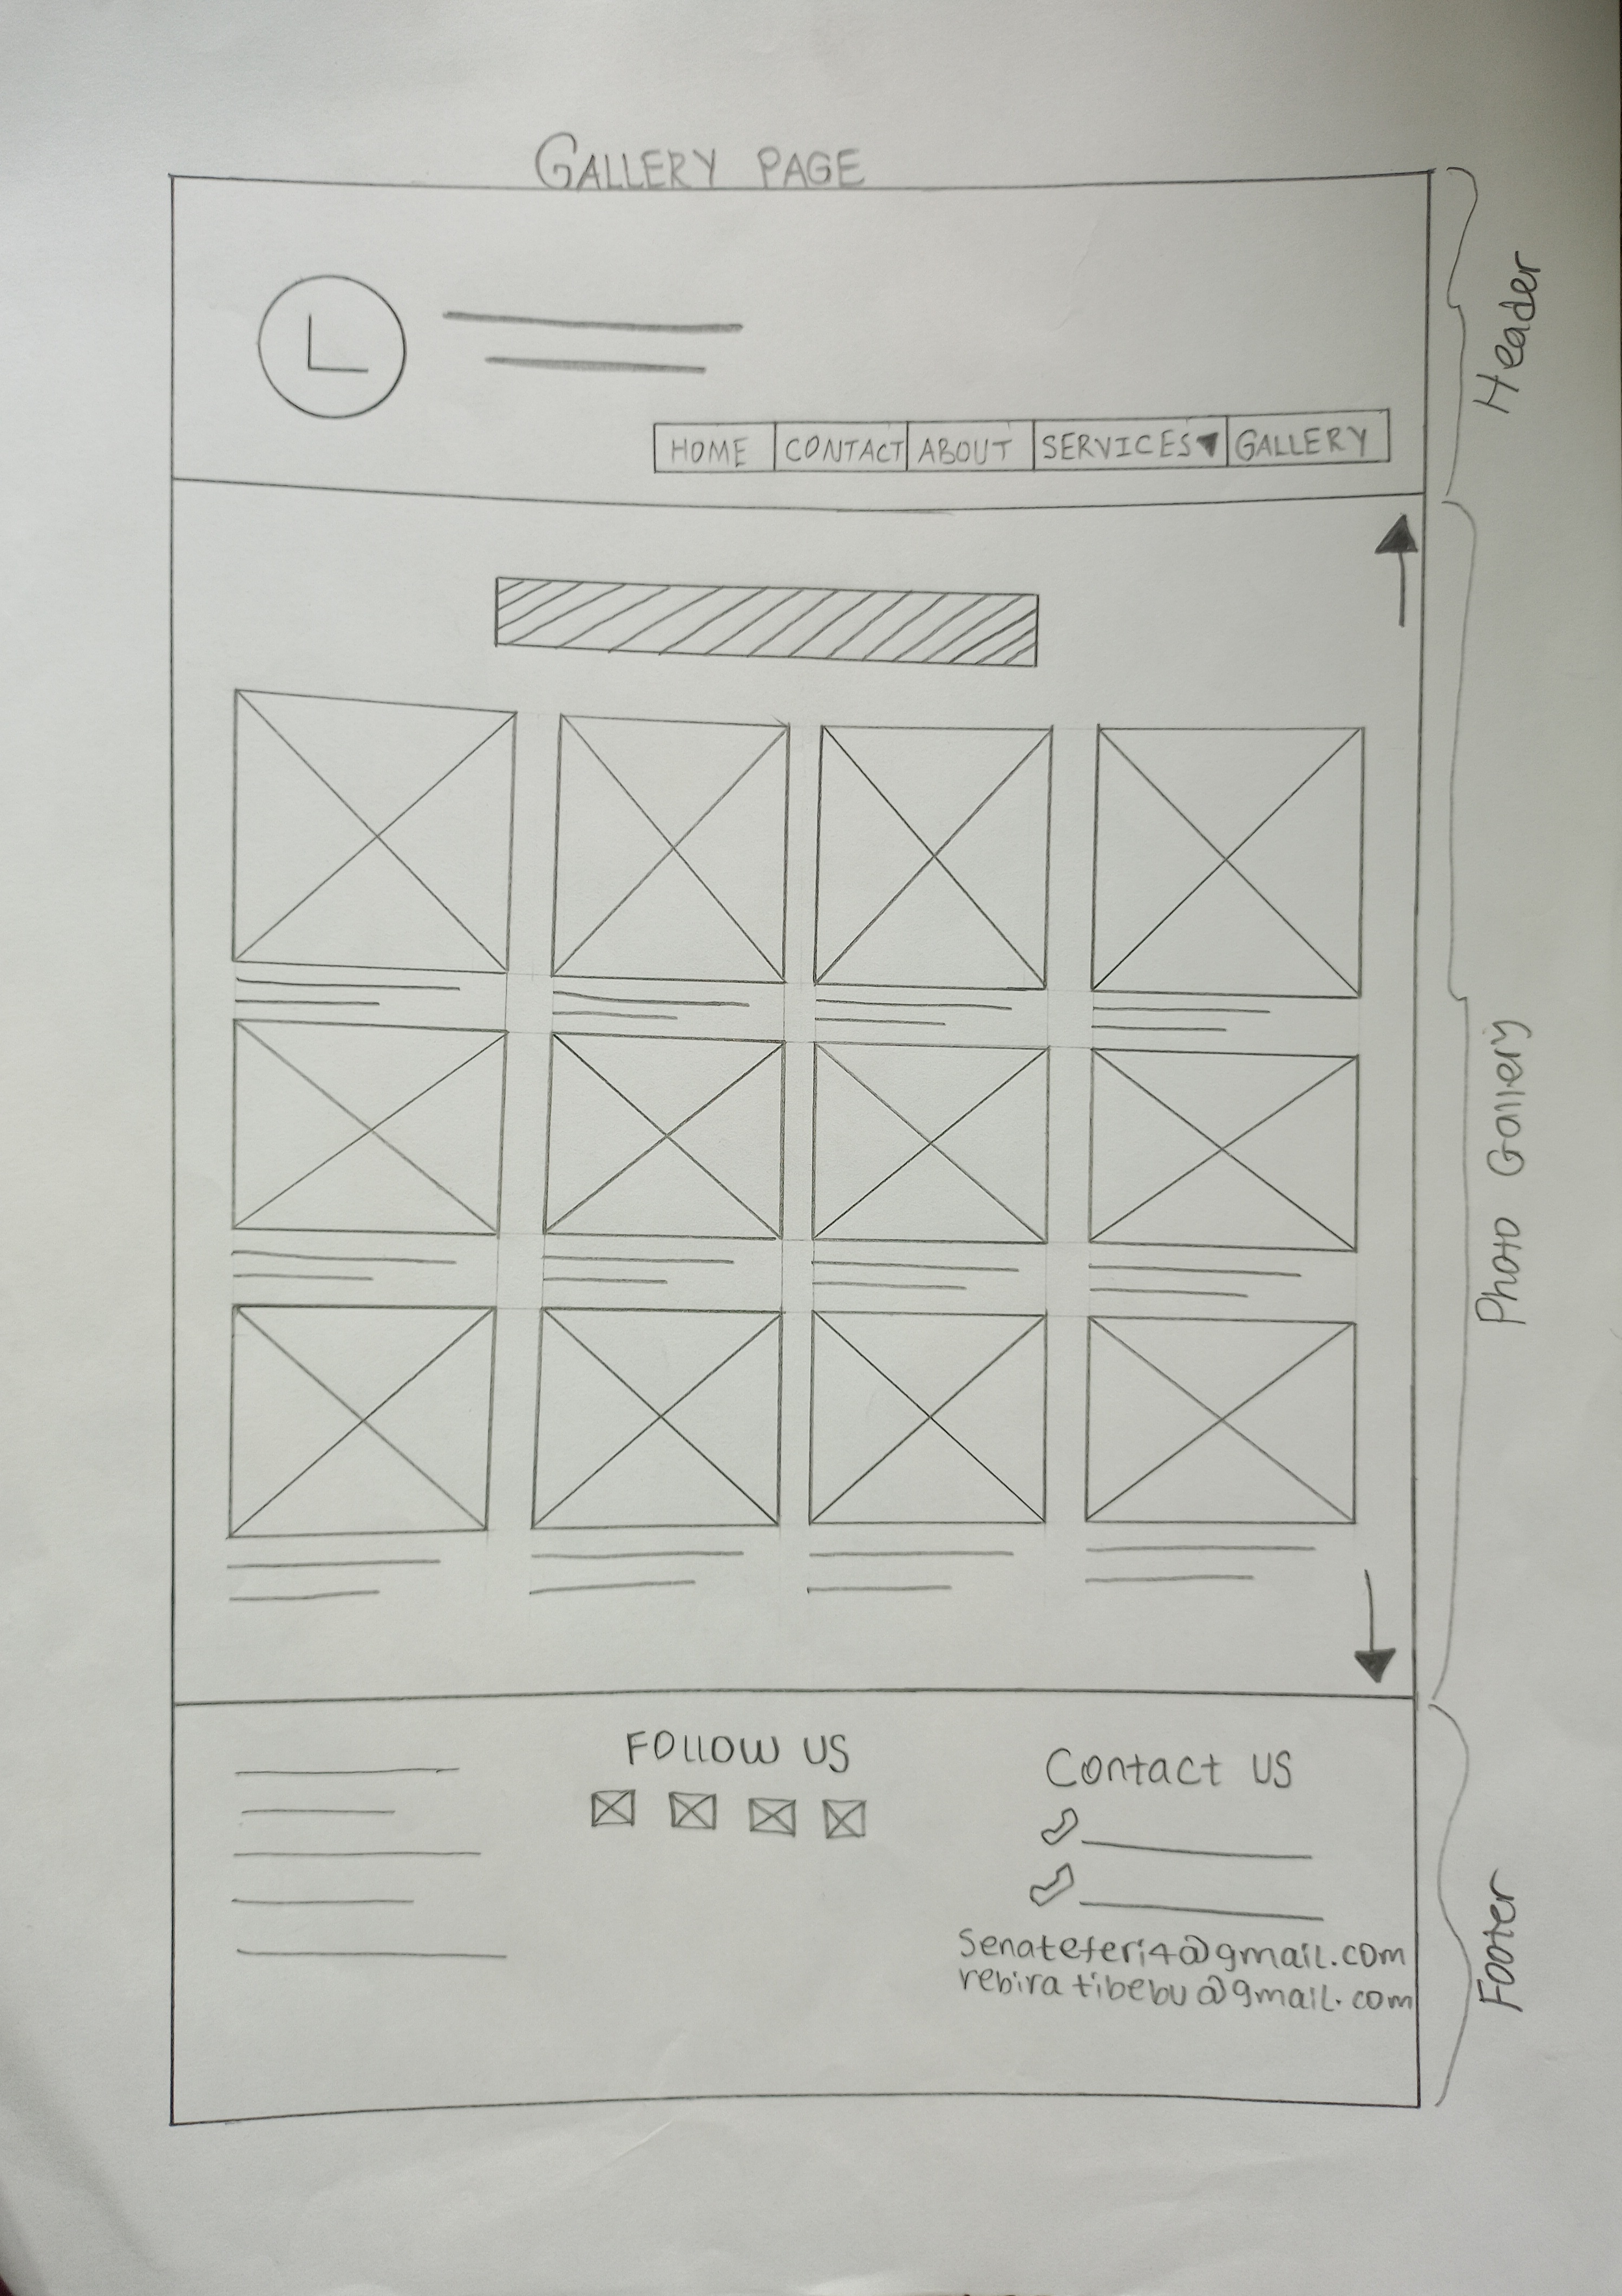 GALLERY PAGE
L
HOME CONTACT ABOUT SERVICES GALLERY
Header
Photo Gallery
FOLLOW US
Contact US
senateferi4@gmail.com
rebira tibebu@gmail.com
Footer